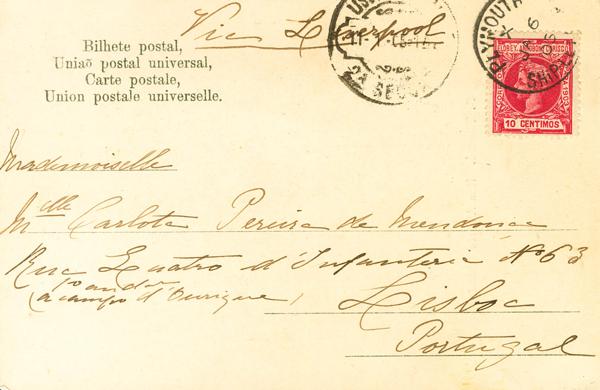 Via Liverpool
Bilhete postal,
Uniaõ postal universal,
Carte postale,
Union postale universelle.
PLYMOUTH
SHIP
10 CENTIMOS
Mademoiselle
Mlle Carlota Pereira de Mendonca
Rua Quatro d'Infanteria Nº 63
1º andar
(a campo d'Ourique)
Lisboa
Portugal